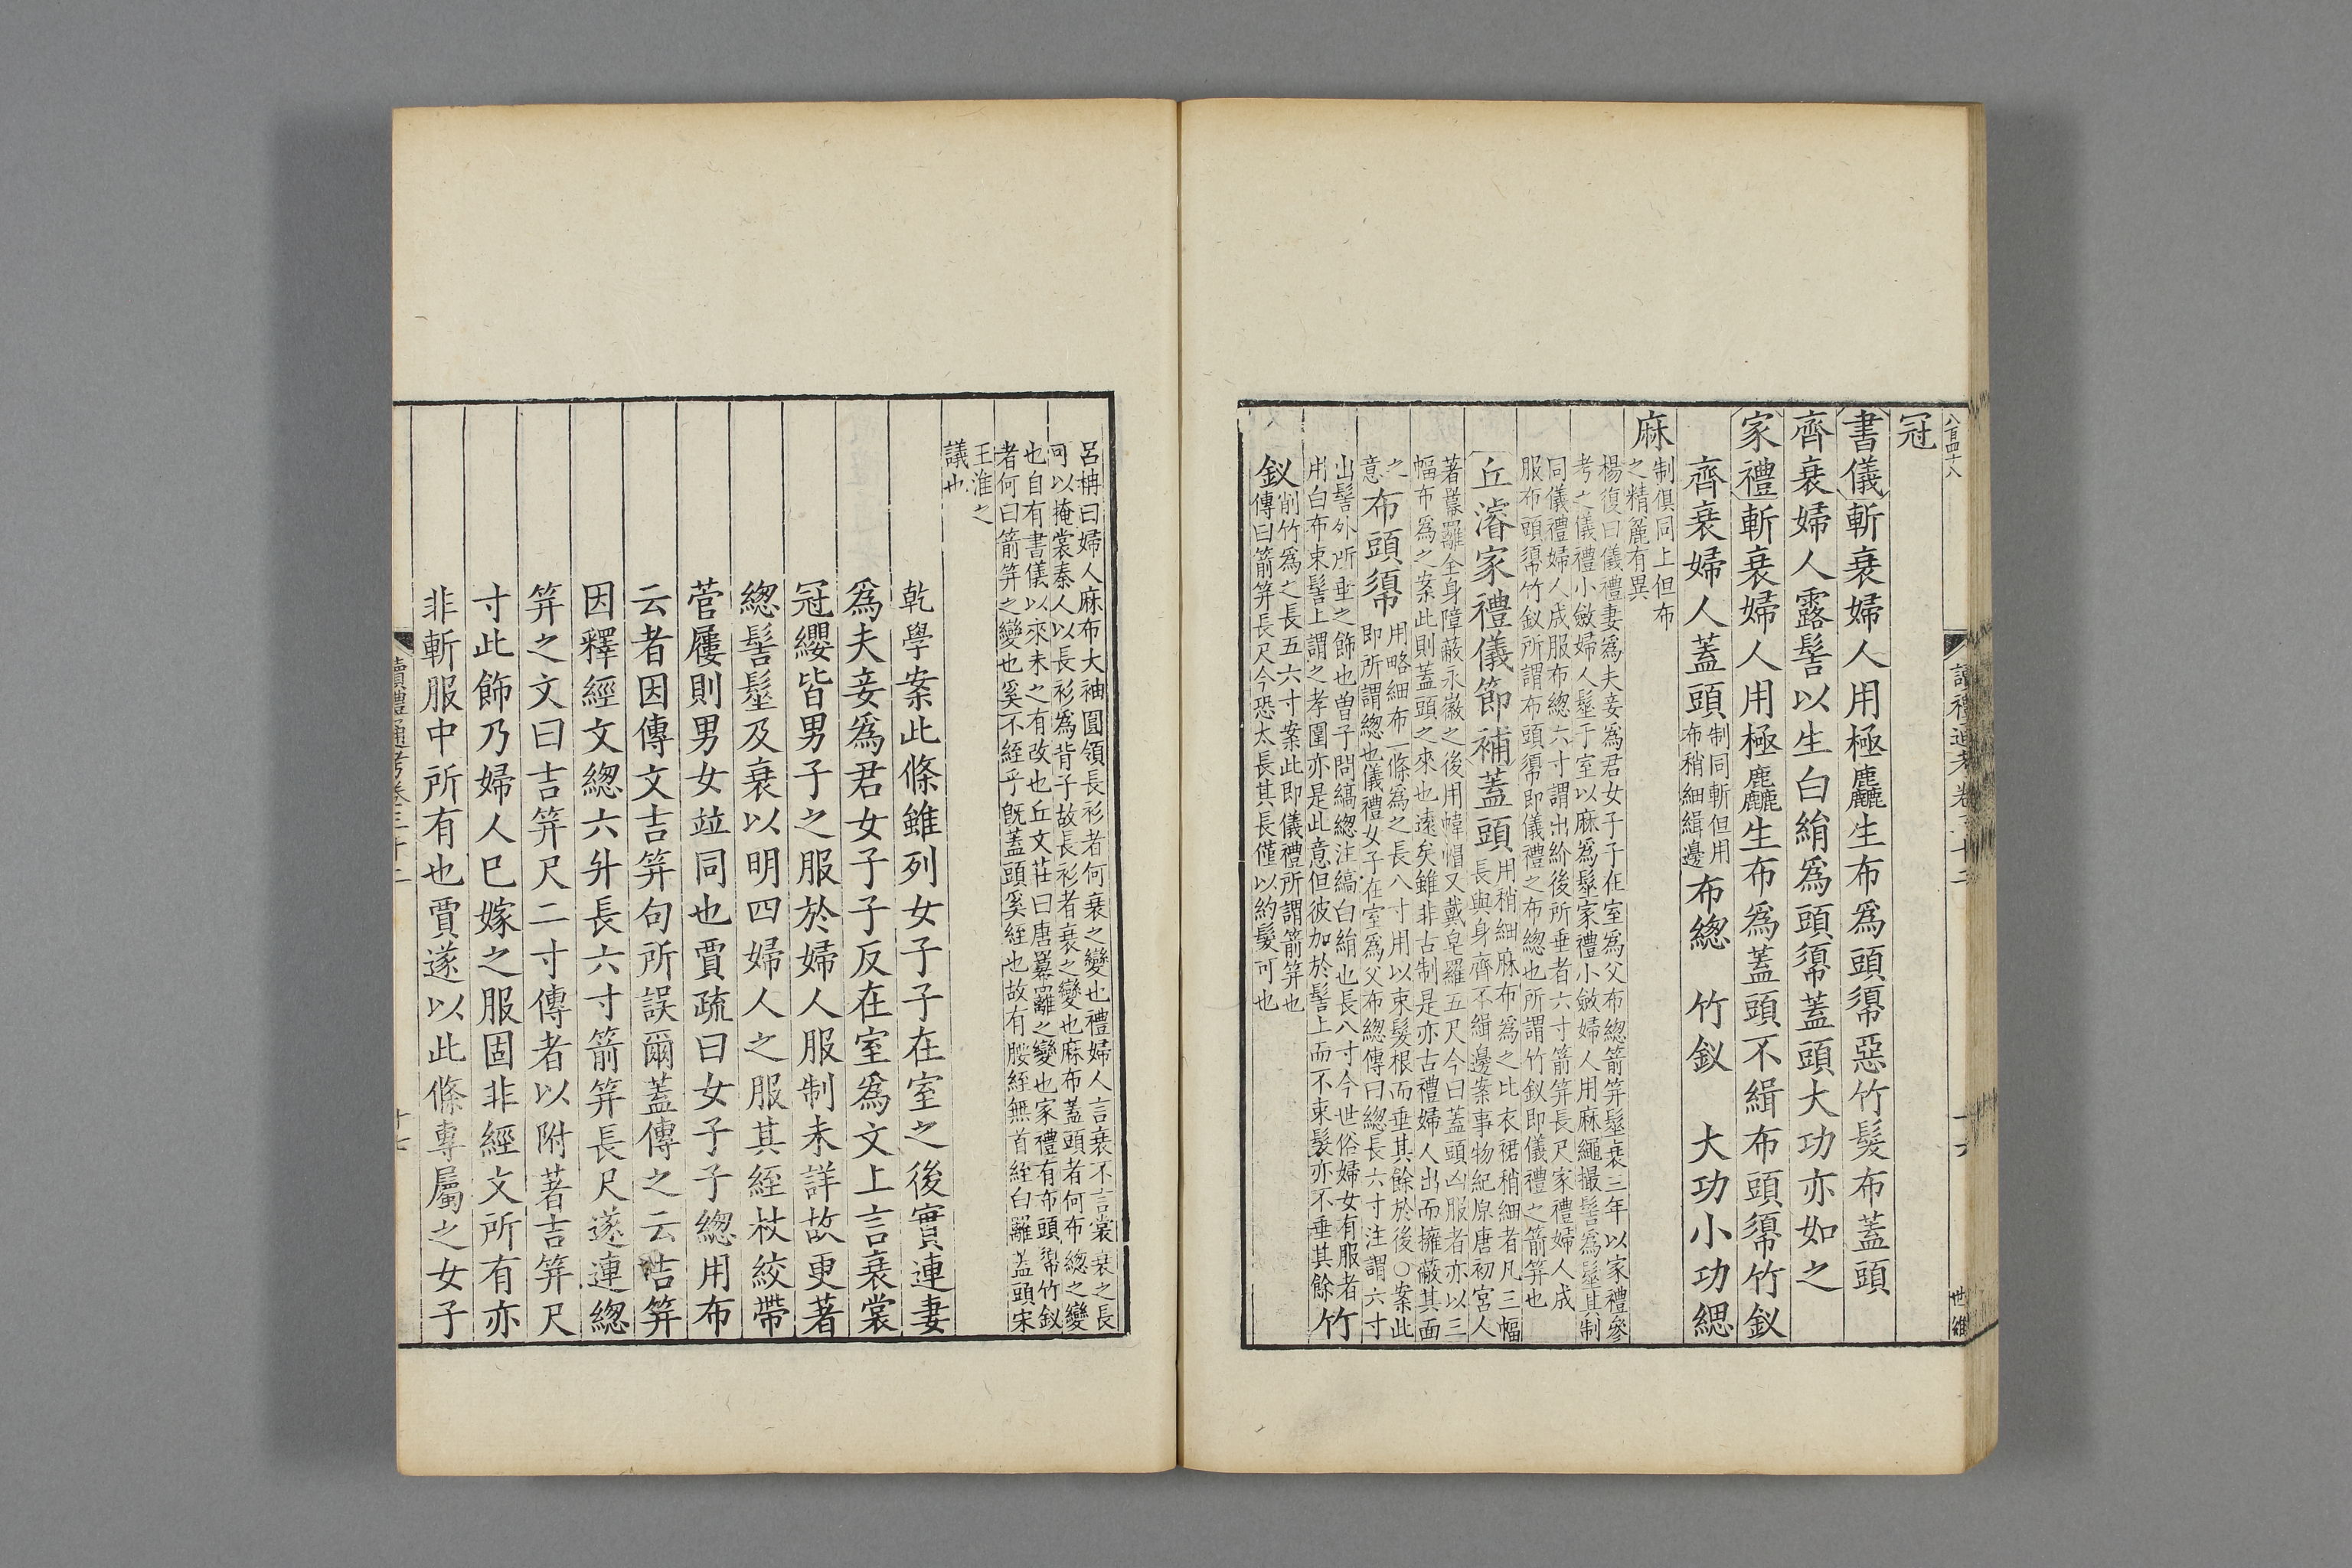 八百四十八
讀禮通考卷三十二
十六
世維
冠
書儀斬衰婦人用極麤生布爲頭䰂惡竹髮布蓋頭
齊衰婦人露髻以生白絹爲頭䰂蓋頭大功亦如之
家禮斬衰婦人用極麤生布爲蓋頭不緝布頭䰂竹釵
齊衰婦人蓋頭制同斬但用布稍細緝邊布總 竹釵 大功小功緦
麻制俱同上但布之精麤有異
楊復曰儀禮妻爲夫妾爲君女子子在室爲父布總箭笄髽衰三年以家禮參
考之儀禮小斂婦人髽于室以麻爲髽家禮小斂婦人用麻繩撮髻爲髽其制
同儀禮婦人成服布總六寸謂出紒後所垂者六寸箭笄長尺家禮婦人成
服布頭䰂竹釵所謂布頭䰂即儀禮之布總也所謂竹釵即儀禮之箭笄也
丘濬家禮儀節補蓋頭用稍細麻布爲之比衣裙稍細者凡三幅長與身齊不緝邊案事物紀原唐初宮人
著冪䍦全身障蔽永徽之後用帷帽又戴皁羅五尺今曰蓋頭凶服者亦以三
幅布爲之案此則蓋頭之來也遠矣雖非古制是亦古禮婦人出而擁蔽其面
之意布頭䰂用略細布一條爲之長八寸用以束髮根而垂其餘於後○案此即所謂總也儀禮女子在室爲父布總傳曰總長六寸注謂六寸
出髻外所垂之飾也曽子問縞總注縞白絹也長八寸今世俗婦女有服者
用白布束髻上謂之孝圍亦是此意但彼加於髻上而不束髮亦不垂其餘竹
釵削竹爲之長五六寸案此即儀禮所謂箭笄也傳曰箭笄長尺今恐太長其長僅以約髮可也
呂柟曰婦人麻布大袖圓領長衫者何衰之變也禮婦人言衰不言裳衰之長
可以掩裳秦人以長衫爲背子故長衫者衰之變也麻布蓋頭者何布總之變
也自有書儀以來未之有改也丘文莊曰唐冪䍦之變也家禮有布頭䰂竹釵
者何曰箭笄之變也奚不絰乎旣蓋頭奚絰也故有腰絰無首絰白䍦蓋頭宋
王淮之
議也
乾學案此條雖列女子子在室之後實連妻
爲夫妾爲君女子子反在室爲文上言衰裳
冠纓皆男子之服於婦人服制未詳故更著
總髻髽及衰以明四婦人之服其絰杖絞帶
菅屨則男女竝同也賈疏曰女子子總用布
云者因傳文吉笄句所誤爾蓋傳之云吉笄
因釋經文總六升長六寸箭笄長尺遂連總
笄之文曰吉笄尺二寸傳者以附著吉笄尺
寸此飾乃婦人已嫁之服固非經文所有亦
非斬服中所有也賈遂以此條專屬之女子
讀禮通考卷三十二
十七